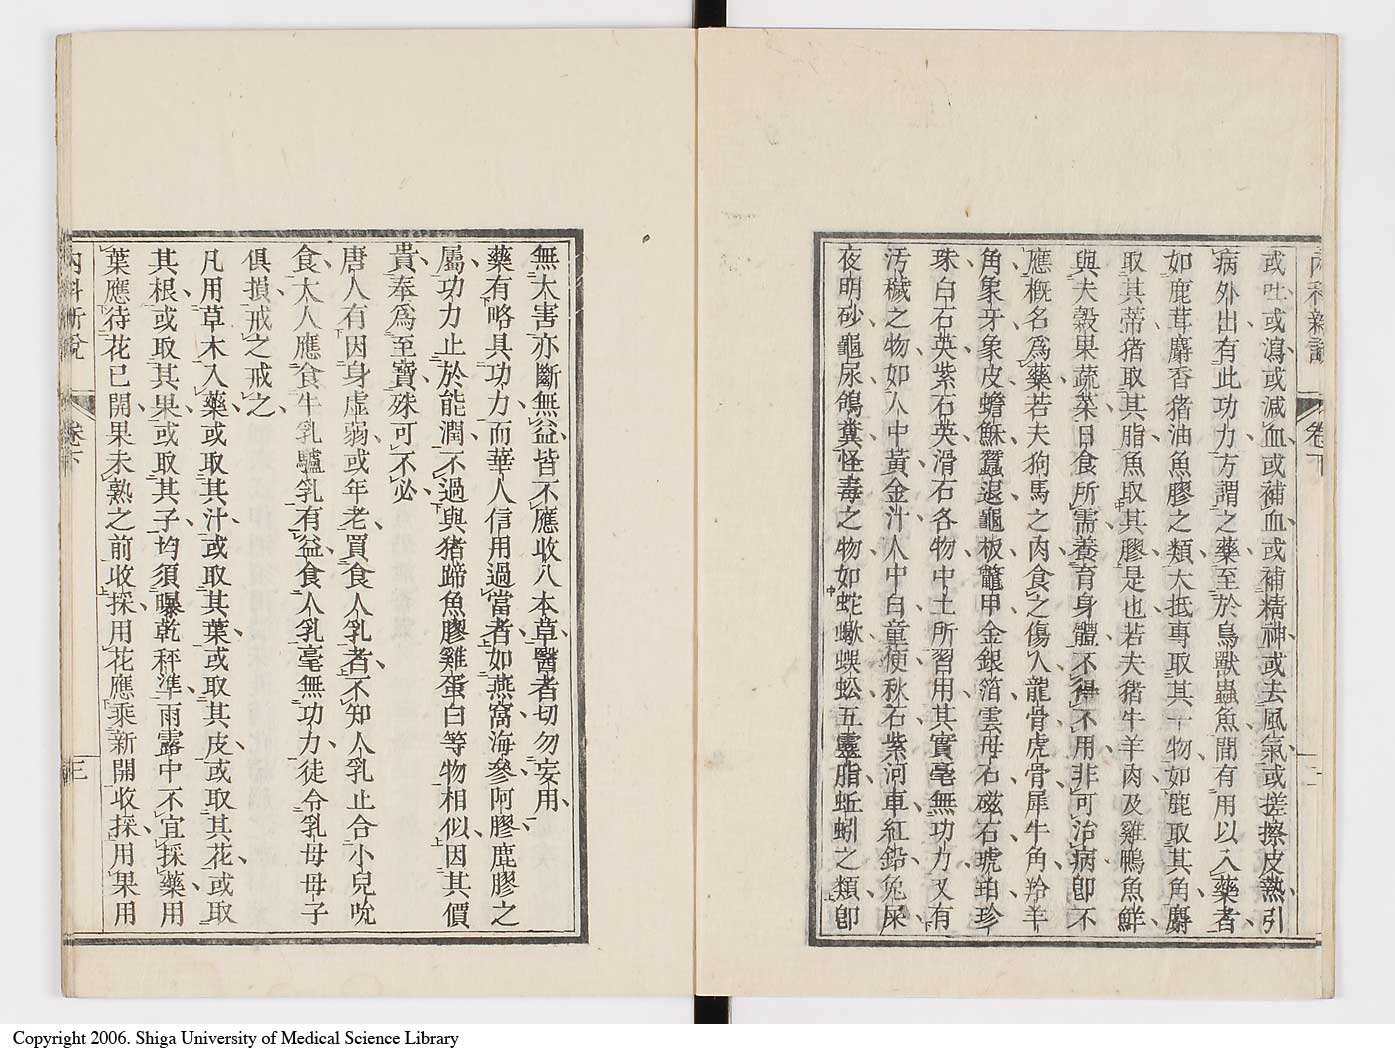 內科新說 卷下
或吐或瀉或減血或補血或補精神或去風氣或搓擦皮熱引
病外出有此功力方謂之藥至於鳥獸蟲魚間有用以入藥者
如鹿茸麝香猪油魚膠之類大抵專取其一物如鹿取其角麝
取其蒂猪取其脂魚取其膠是也若夫猪牛羊肉及雞鴨魚鮮
與夫穀果蔬菜日食所需養育身體不得不用非可治病卽不
應概名爲藥若夫狗馬之肉食之傷人龍骨虎骨犀牛角羚羊
角象牙象皮蟾酥蠶退龜板龜甲金銀箔雲母石磁石琥珀珍
珠白石英紫石英滑石各物中土所習用其實毫無功力又有
汚穢之物如人中黃金汁人中白童便秋石紫河車紅鉛兔屎
夜明砂龜尿鴿糞怪毒之物如蛇蠍蜈蚣五靈脂蚯蚓之類卽
無大害亦斷無益皆不應收入本草醫者切勿妄用
藥有略具功力而華人信用過當者如燕窩海參阿膠鹿膠之
屬功力止於能潤不過與猪蹄魚膠雞蛋白等物相似因其價
貴奉爲至寶殊可不必
唐人有因身虛弱或年老買食人乳者不知人乳止合小兒吮
食大人應食牛乳驢乳有益食人乳毫無功力徒令乳母母子
俱損戒之戒之
凡用草木入藥或取其汁或取其葉或取其皮或取其花或取
其根或取其果或取其子均須曝乾秤準雨露中不宜採藥用
葉應待花已開果未熟之前收採用花應乘新開收採用果用
內科新說 卷下 三
Copyright 2006. Shiga University of Medical Science Library